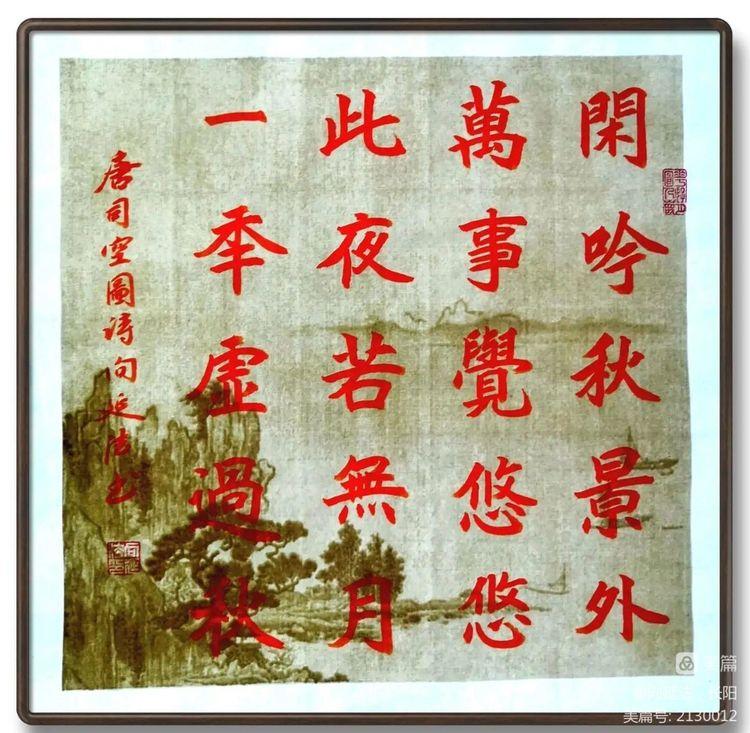 閑吟秋景外
萬事覺悠悠
此夜若無月
一秊虛過秋
唐司空圖詩句延法书
美篇
长阳
美篇号: 2130012